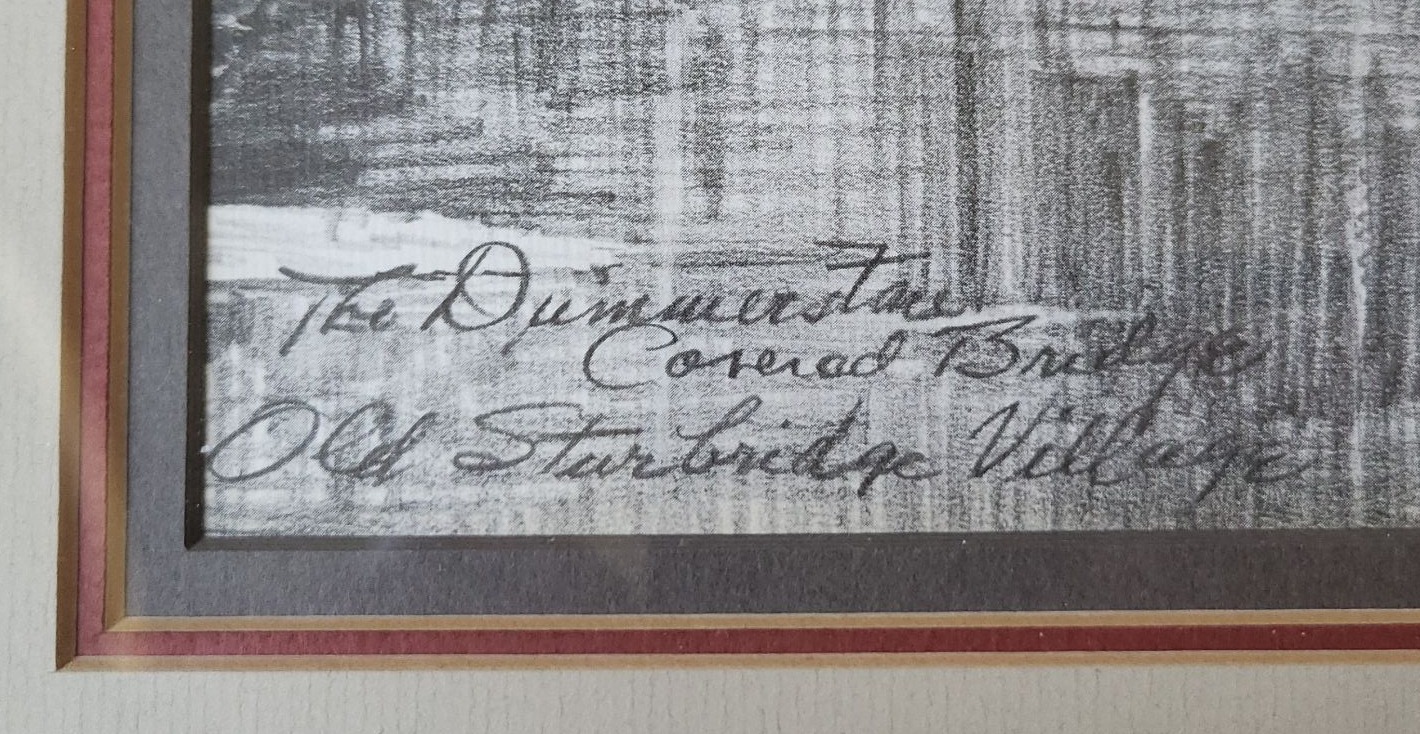 The Dummerstone
Covered Bridge
Old Sturbridge Village